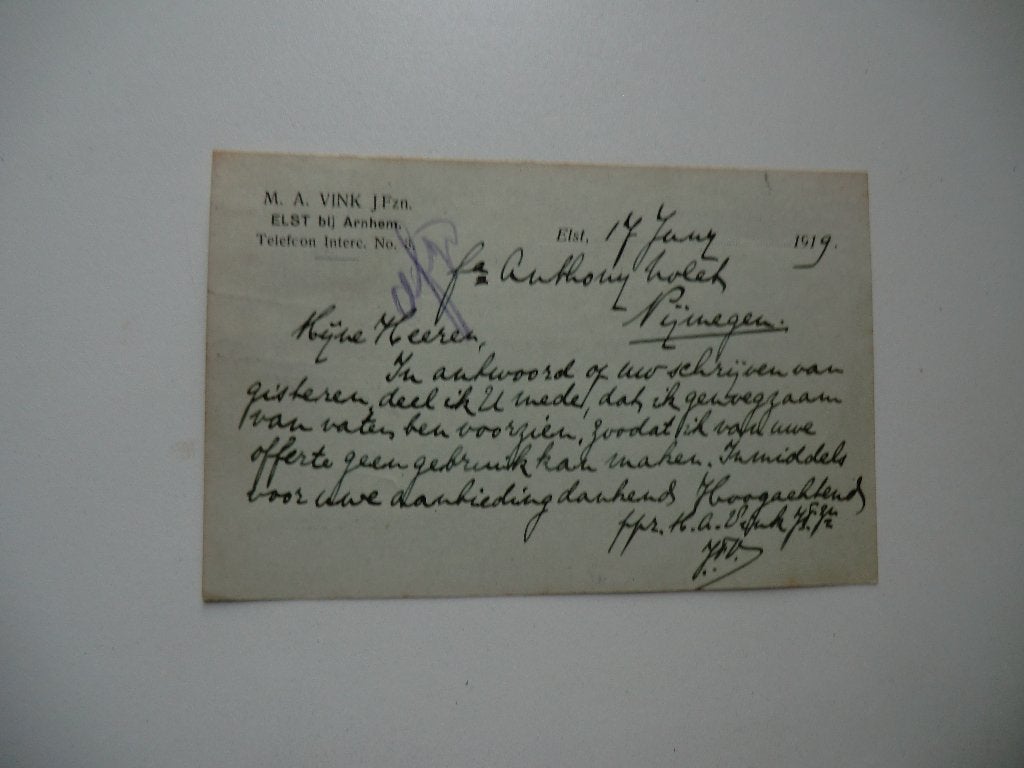 M. A. VINK JFzn.
ELST bij Arnhem.
Telefoon Interc. No. 8.
Elst, 17 Juny 1919.
fa Anthony Nolet
Nijmegen.
Mijne Heeren,
In antwoord op uw schrijven van
gisteren, deel ik U mede, dat ik genoegzaam
van vaten ben voorzien, zoodat ik van uwe
offerte geen gebruik kan maken. Inmiddels
voor uwe aanbieding dankend Hoogachtend
ppr. M. A. Vink JFzn